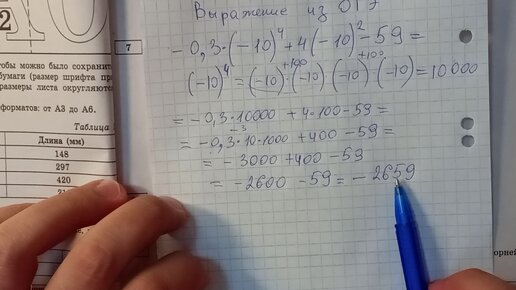 2
7
тобы можно было сохранить
бумаги (размер шрифта пр
размеры листа округляются
форматов: от А3 до А6.
Таблица
Длина (мм)
148
297
420
21
Выражение из ОГЭ
-0,3·(-10)⁴+4(-10)²-59=
+100 +100
(-10)⁴=(-10)·(-10)·(-10)·(-10)=10000
=-0,3·10000+4·100-59=
-3
=-0,3·10·1000+400-59=
=-3000+400-59
=-2600-59=-2659
орней